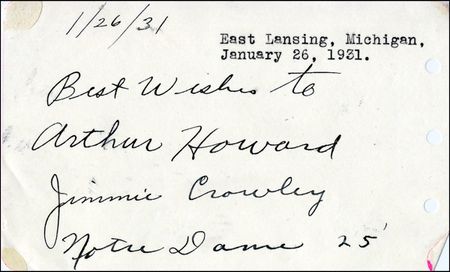 1/26/31
East Lansing, Michigan,
January 26, 1931.
Best Wishes to
Arthur Howard
Jimmie Crowley
Notre Dame 25'